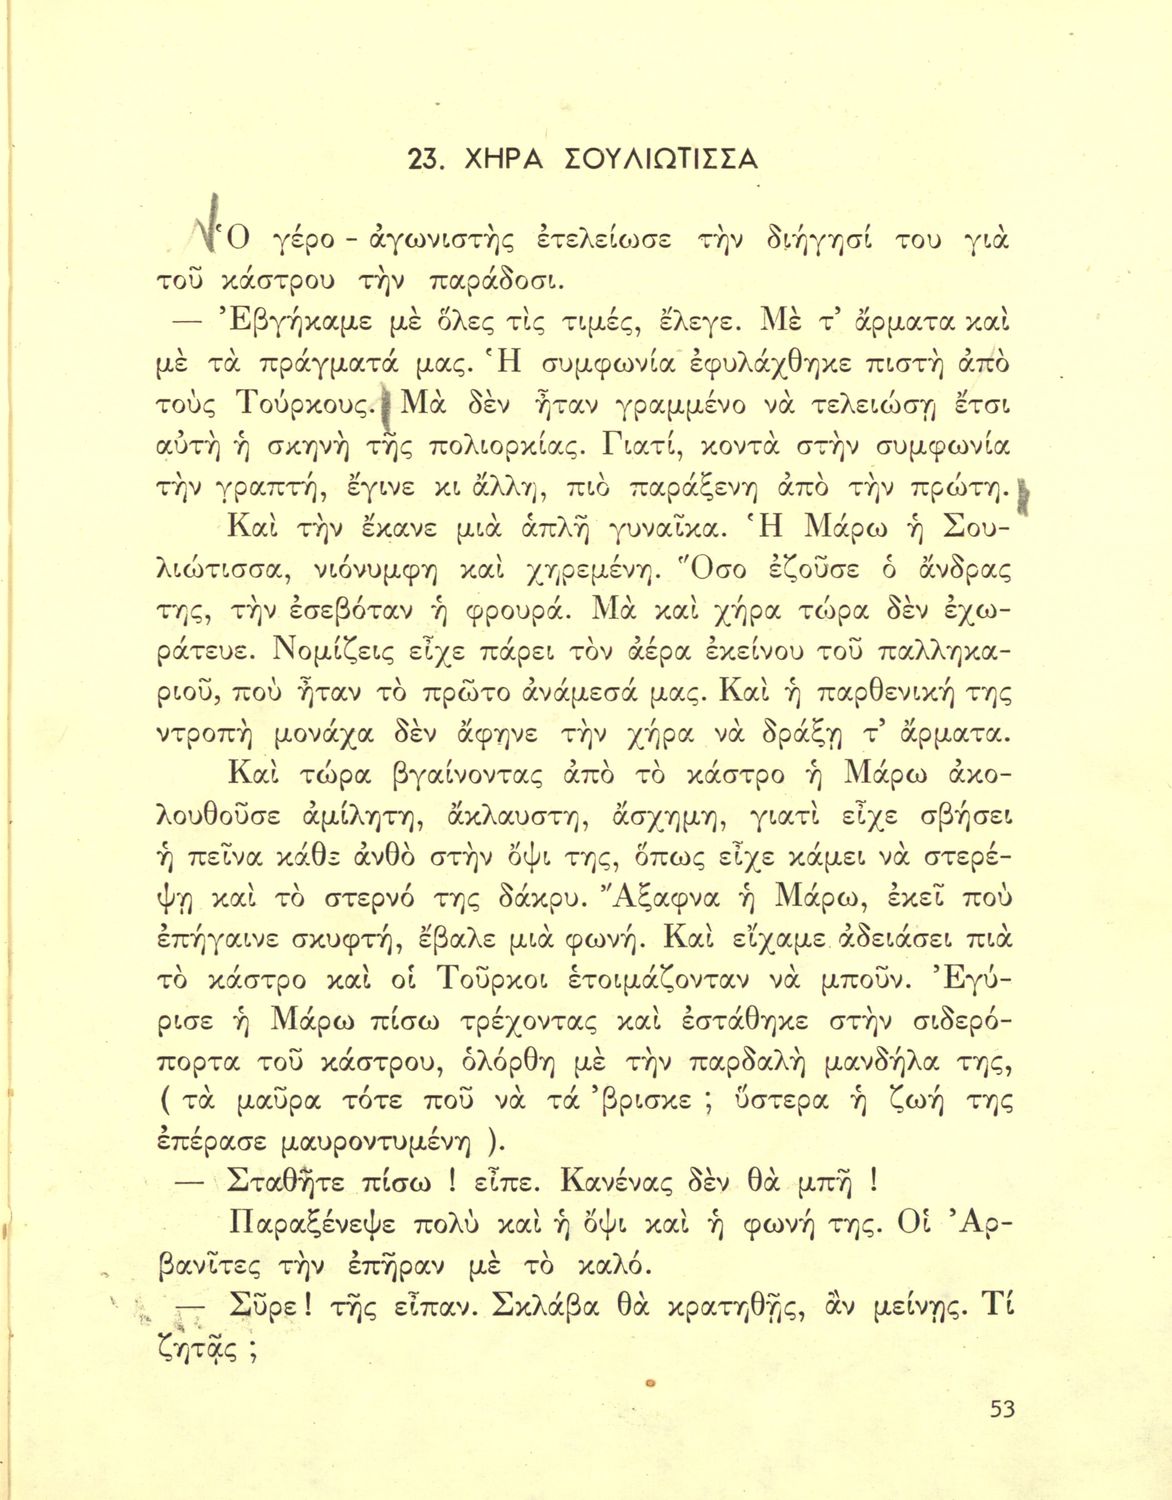 23. ΧΗΡΑ ΣΟΥΛΙΩΤΙΣΣΑ
Ὁ γέρο - ἀγωνιστὴς ἐτελείωσε τὴν διήγησί του γιὰ
τοῦ κάστρου τὴν παράδοσι.
— Ἐβγήκαμε μὲ ὅλες τὶς τιμές, ἔλεγε. Μὲ τ’ ἄρματα καὶ
μὲ τὰ πράγματά μας. Ἡ συμφωνία ἐφυλάχθηκε πιστὴ ἀπὸ
τοὺς Τούρκους. Μὰ δὲν ἦταν γραμμένο νὰ τελειώσῃ ἔτσι
αὐτὴ ἡ σκηνὴ τῆς πολιορκίας. Γιατί, κοντὰ στὴν συμφωνία
τὴν γραπτή, ἔγινε κι ἄλλη, πιὸ παράξενη ἀπὸ τὴν πρώτη.
Καὶ τὴν ἔκανε μιὰ ἁπλῆ γυναῖκα. Ἡ Μάρω ἡ Σου-
λιώτισσα, νιόνυμφη καὶ χηρεμένη. Ὅσο ἐζοῦσε ὁ ἄνδρας
της, τὴν ἐσεβόταν ἡ φρουρά. Μὰ καὶ χήρα τώρα δὲν ἐχω-
ράτευε. Νομίζεις εἶχε πάρει τὸν ἀέρα ἐκείνου τοῦ παλληκα-
ριοῦ, ποὺ ἦταν τὸ πρῶτο ἀνάμεσά μας. Καὶ ἡ παρθενική της
ντροπὴ μονάχα δὲν ἄφηνε τὴν χήρα νὰ δράξῃ τ’ ἄρματα.
Καὶ τώρα βγαίνοντας ἀπὸ τὸ κάστρο ἡ Μάρω ἀκο-
λουθοῦσε ἀμίλητη, ἄκλαυστη, ἄσχημη, γιατὶ εἶχε σβήσει
ἡ πεῖνα κάθε ἀνθὸ στὴν ὄψι της, ὅπως εἶχε κάμει νὰ στερέ-
ψῃ καὶ τὸ στερνό της δάκρυ. Ἄξαφνα ἡ Μάρω, ἐκεῖ ποὺ
ἐπήγαινε σκυφτή, ἔβαλε μιὰ φωνή. Καὶ εἴχαμε ἀδειάσει πιὰ
τὸ κάστρο καὶ οἱ Τοῦρκοι ἑτοιμάζονταν νὰ μποῦν. Ἐγύ-
ρισε ἡ Μάρω πίσω τρέχοντας καὶ ἐστάθηκε στὴν σιδερό-
πορτα τοῦ κάστρου, ὁλόρθη μὲ τὴν παρδαλὴ μανδήλα της,
( τὰ μαῦρα τότε ποῦ νὰ τά ’βρισκε ; ὕστερα ἡ ζωή της
ἐπέρασε μαυροντυμένη ).
— Σταθῆτε πίσω ! εἶπε. Κανένας δὲν θὰ μπῆ !
Παραξένεψε πολὺ καὶ ἡ ὄψι καὶ ἡ φωνή της. Οἱ Ἀρ-
βανῖτες τὴν ἐπῆραν μὲ τὸ καλό.
— Σῦρε ! τῆς εἶπαν. Σκλάβα θὰ κρατηθῇς, ἂν μείνῃς. Τί
ζητᾷς ;
53